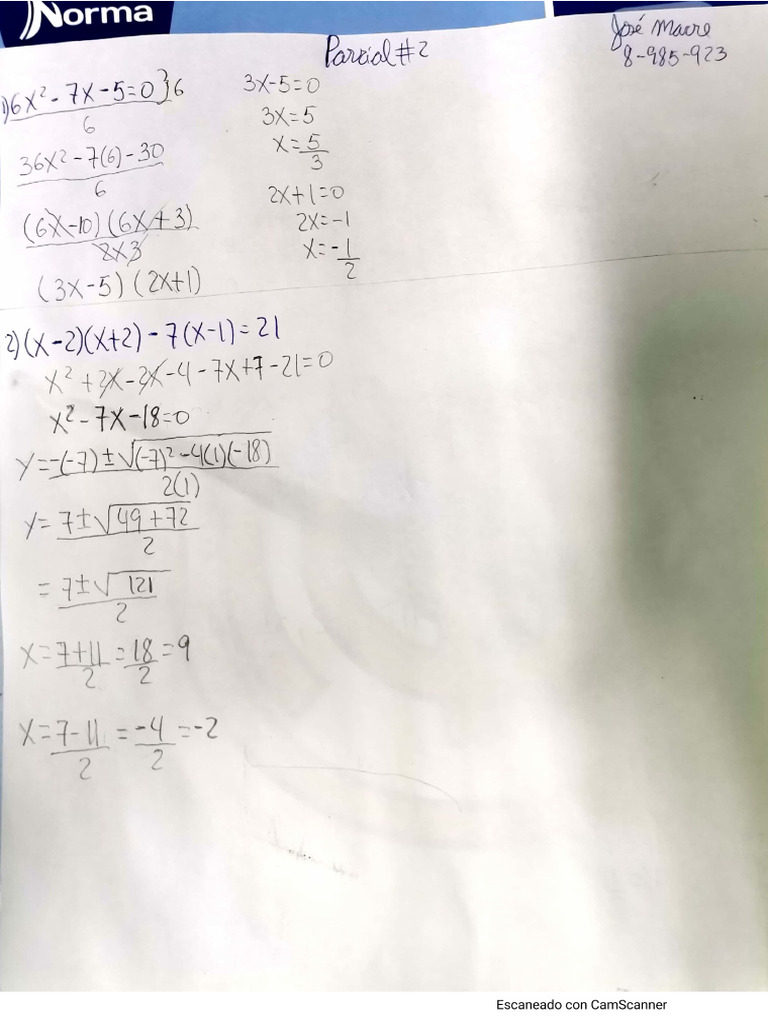 Norma
Parcial #2
José Macre
8-985-923
1) 6x² - 7x - 5 = 0 } 6
6
36x² - 7(6) - 30
6
(6x - 10) (6x + 3)
2x3
(3x - 5) (2x + 1)
3x - 5 = 0
3x = 5
x = 5/3
2x + 1 = 0
2x = -1
x = -1/2
2) (x - 2)(x + 2) - 7(x - 1) = 21
x² + 2x - 2x - 4 - 7x + 7 - 21 = 0
x² - 7x - 18 = 0
y = -(-7) ± √(-7)² - 4(1)(-18)
2(1)
y = 7 ± √49 + 72
2
= 7 ± √121
2
x = 7 + 11 = 18 = 9
2 2
x = 7 - 11 = -4 = -2
2 2
Escaneado con CamScanner